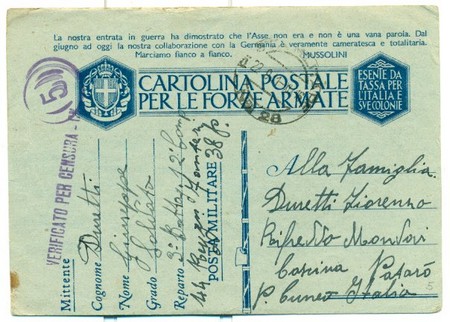 La nostra entrata in guerra ha dimostrato che l'Asse non era e non è una vana parola. Dal
giugno ad oggi la nostra collaborazione con la Germania è veramente cameratesca e totalitaria.
Marciamo fianco a fianco. MUSSOLINI
CARTOLINA POSTALE
PER LE FORZE ARMATE
ESENTE DA
TASSA PER
L'ITALIA E
SUE COLONIE
5
VERIFICATO PER CENSURA
28
Mittente
Cognome Duretti
Nome Giuseppe
Grado Soldato
Reparto 3° Battag 12 Comp
44 Regg. Fanteria
POSTA MILITARE 38
Alla Famiglia
Duretti Fiorenzo
Rifreddo Mondovi
Cascina
P. Cuneo Italia
5